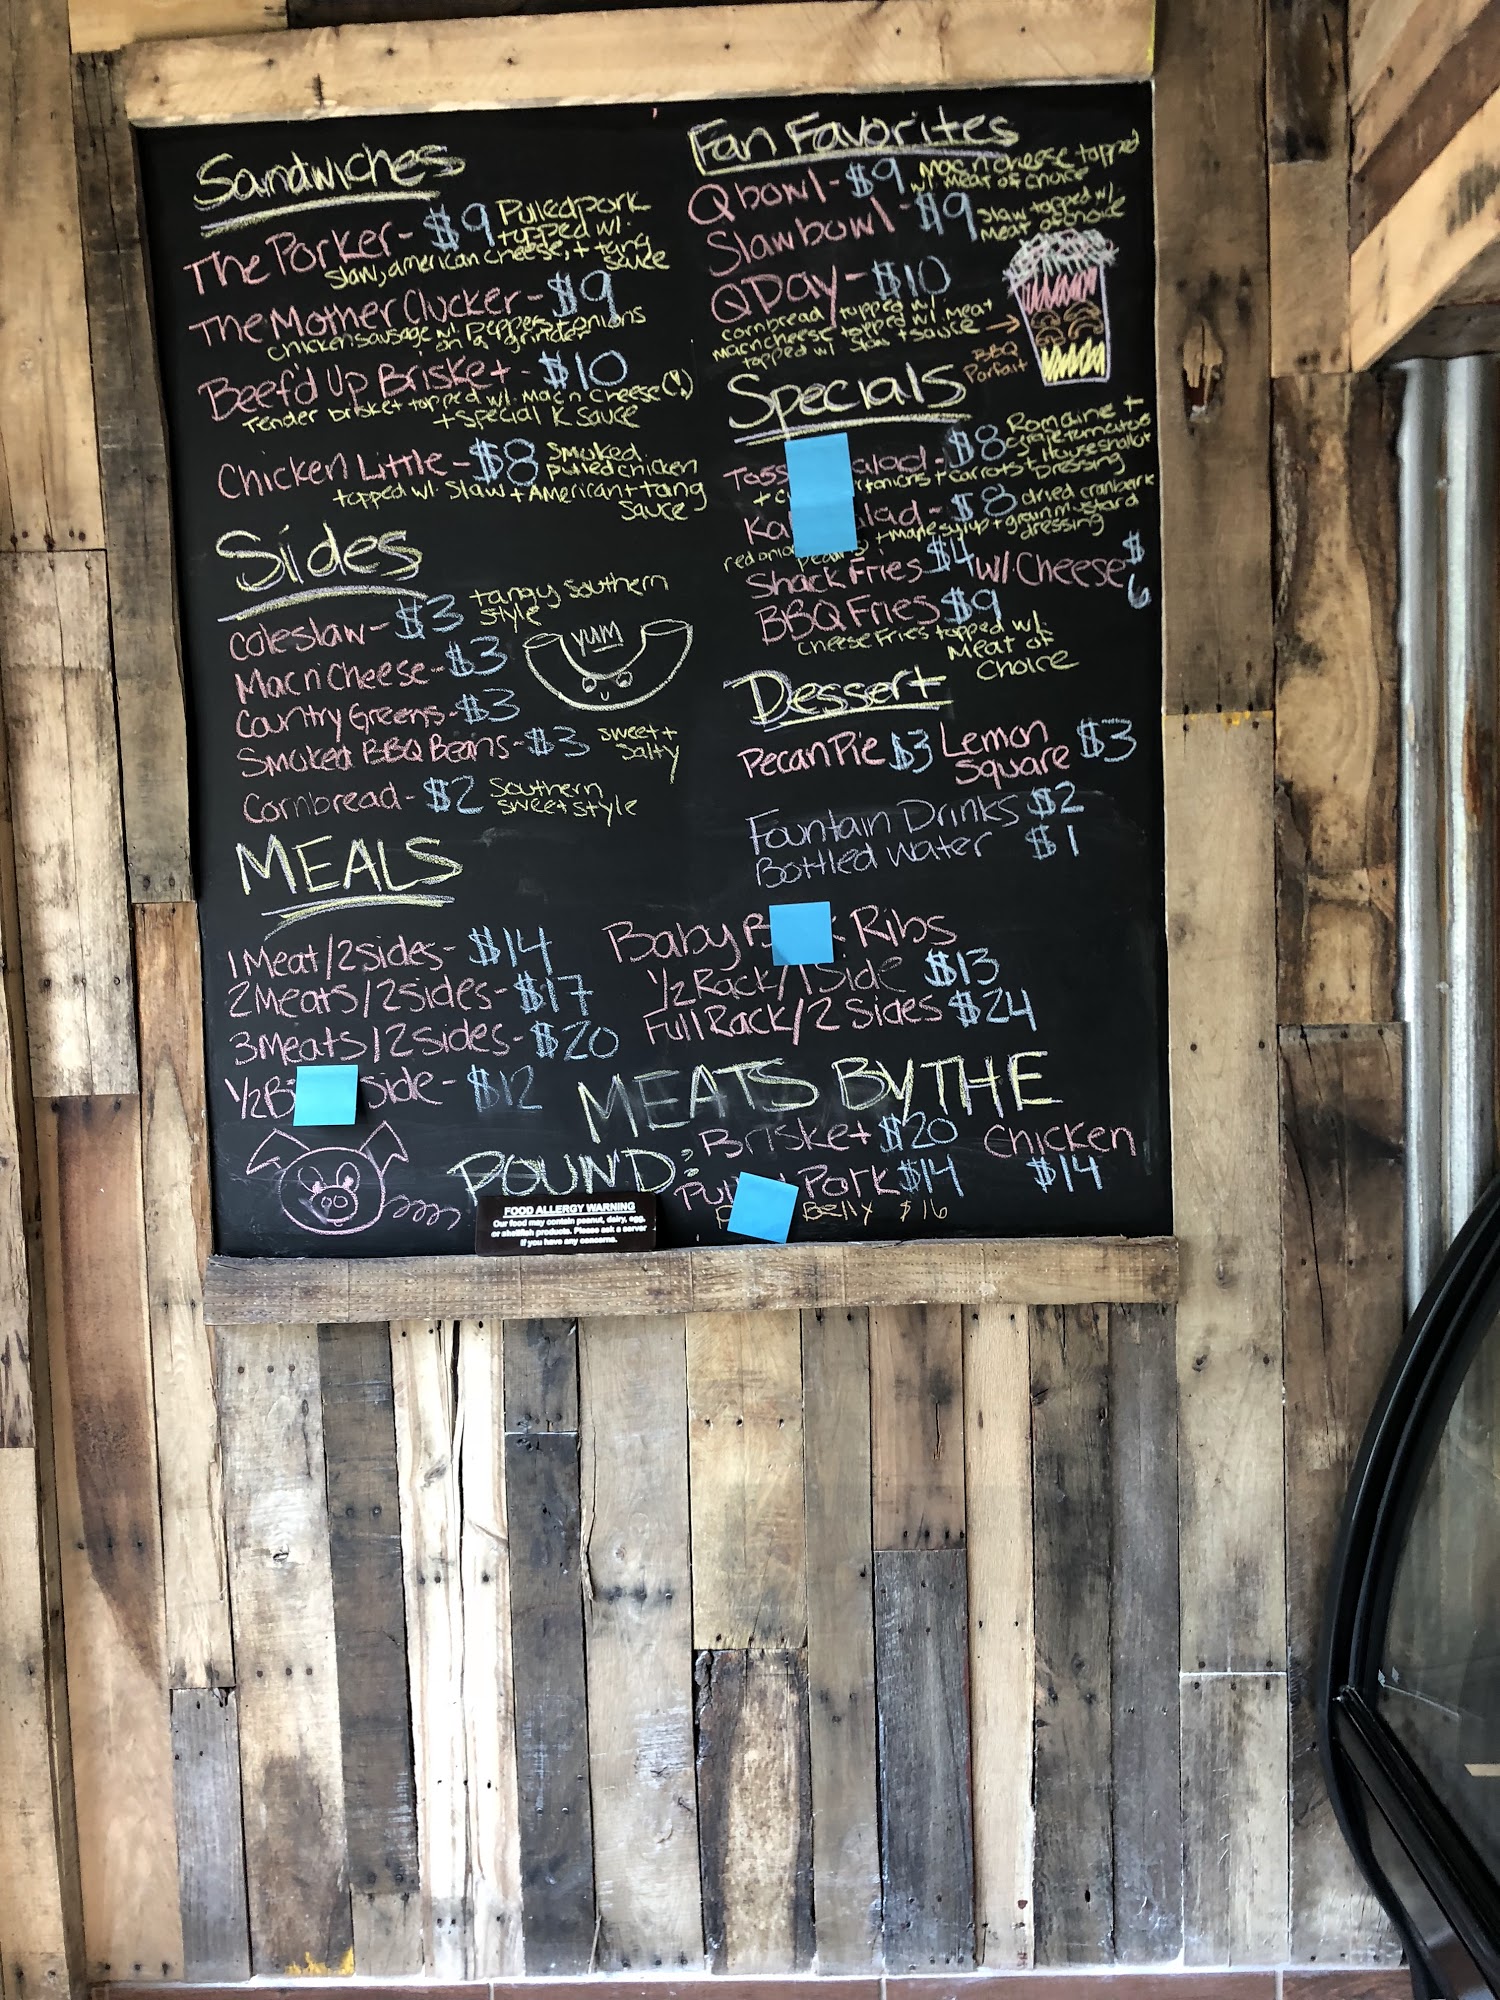 Sandwiches
The Porker- $9 Pulled pork
topped w/.
Slaw, american cheese, + tang
sauce
The Mother Clucker- $9
chicken sausage w/ peppers + onions
on a grinder
Beef'd Up Brisket- $10
Tender brisket topped w/. Mac n Cheese (!)
+ special K Sauce
Chicken Little- $8 smoked
pulled chicken
topped w/. Slaw + American + tang
sauce
Sides
Coleslaw- $3 tangy southern
style
yum
Mac n Cheese- $3
Country Greens- $3
Smoked BBQ Beans- $3 sweet +
salty
Cornbread- $2 Southern
sweet style
MEALS
1 Meat/2 sides- $14
2 Meats/2 sides- $17
3 Meats/2 sides- $20
1/2 B side- $12
Fan Favorites
Q bowl- $9 Mac n cheese topped
w/ Meat of choice
Slaw bowl- $9 Slaw topped w/.
Meat of choice
Q Day- $10
cornbread topped w/.
mac n cheese topped w/. Meat
topped w/ slaw + sauce →
BBQ
Parfait
Specials
Toss alad- $8 Romaine +
grape tomatoes
+ c r + onions + carrots + House shallot
Dressing
Ka lad- $8 dried cranberk
red onio pecans + maple syrup + grain mustard
dressing
Shack Fries $4 w/. Cheese $6
BBQ Fries $9
cheese fries topped w/.
Meat of
Choice
Dessert
Pecan Pie $3 Lemon
Square $3
Fountain Drinks $2
Bottled Water $1
Baby B k Ribs
1/2 Rack/1 Side $13
Full Rack/2 Sides $24
MEATS BY THE
POUND: Brisket $20 Chicken
$14
Pu Pork $14
Belly $16
FOOD ALLERGY WARNING
Our food may contain peanut, dairy, egg,
or shellfish products. Please ask a server
if you have any concerns.